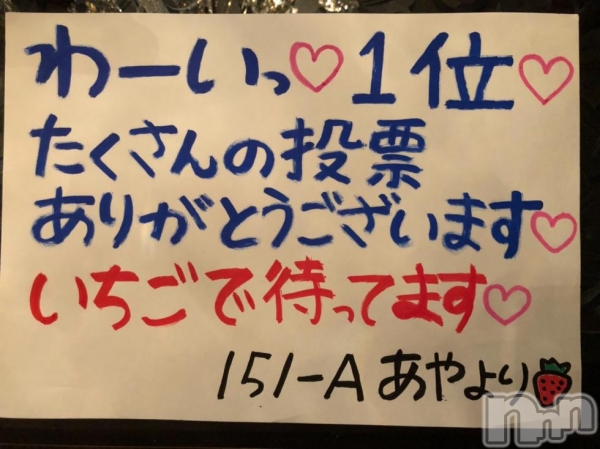 わーいっ♡1位♡
たくさんの投票
ありがとうございます♡
いちごで待ってます♡
151-A あやより🍓